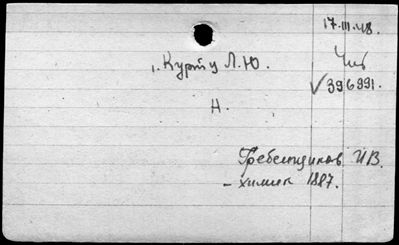 17.III.48.
1. Курту Л.Ю.
Чит
✓396991.
Н.
Гребенщиков И.В.
– химик 1887.